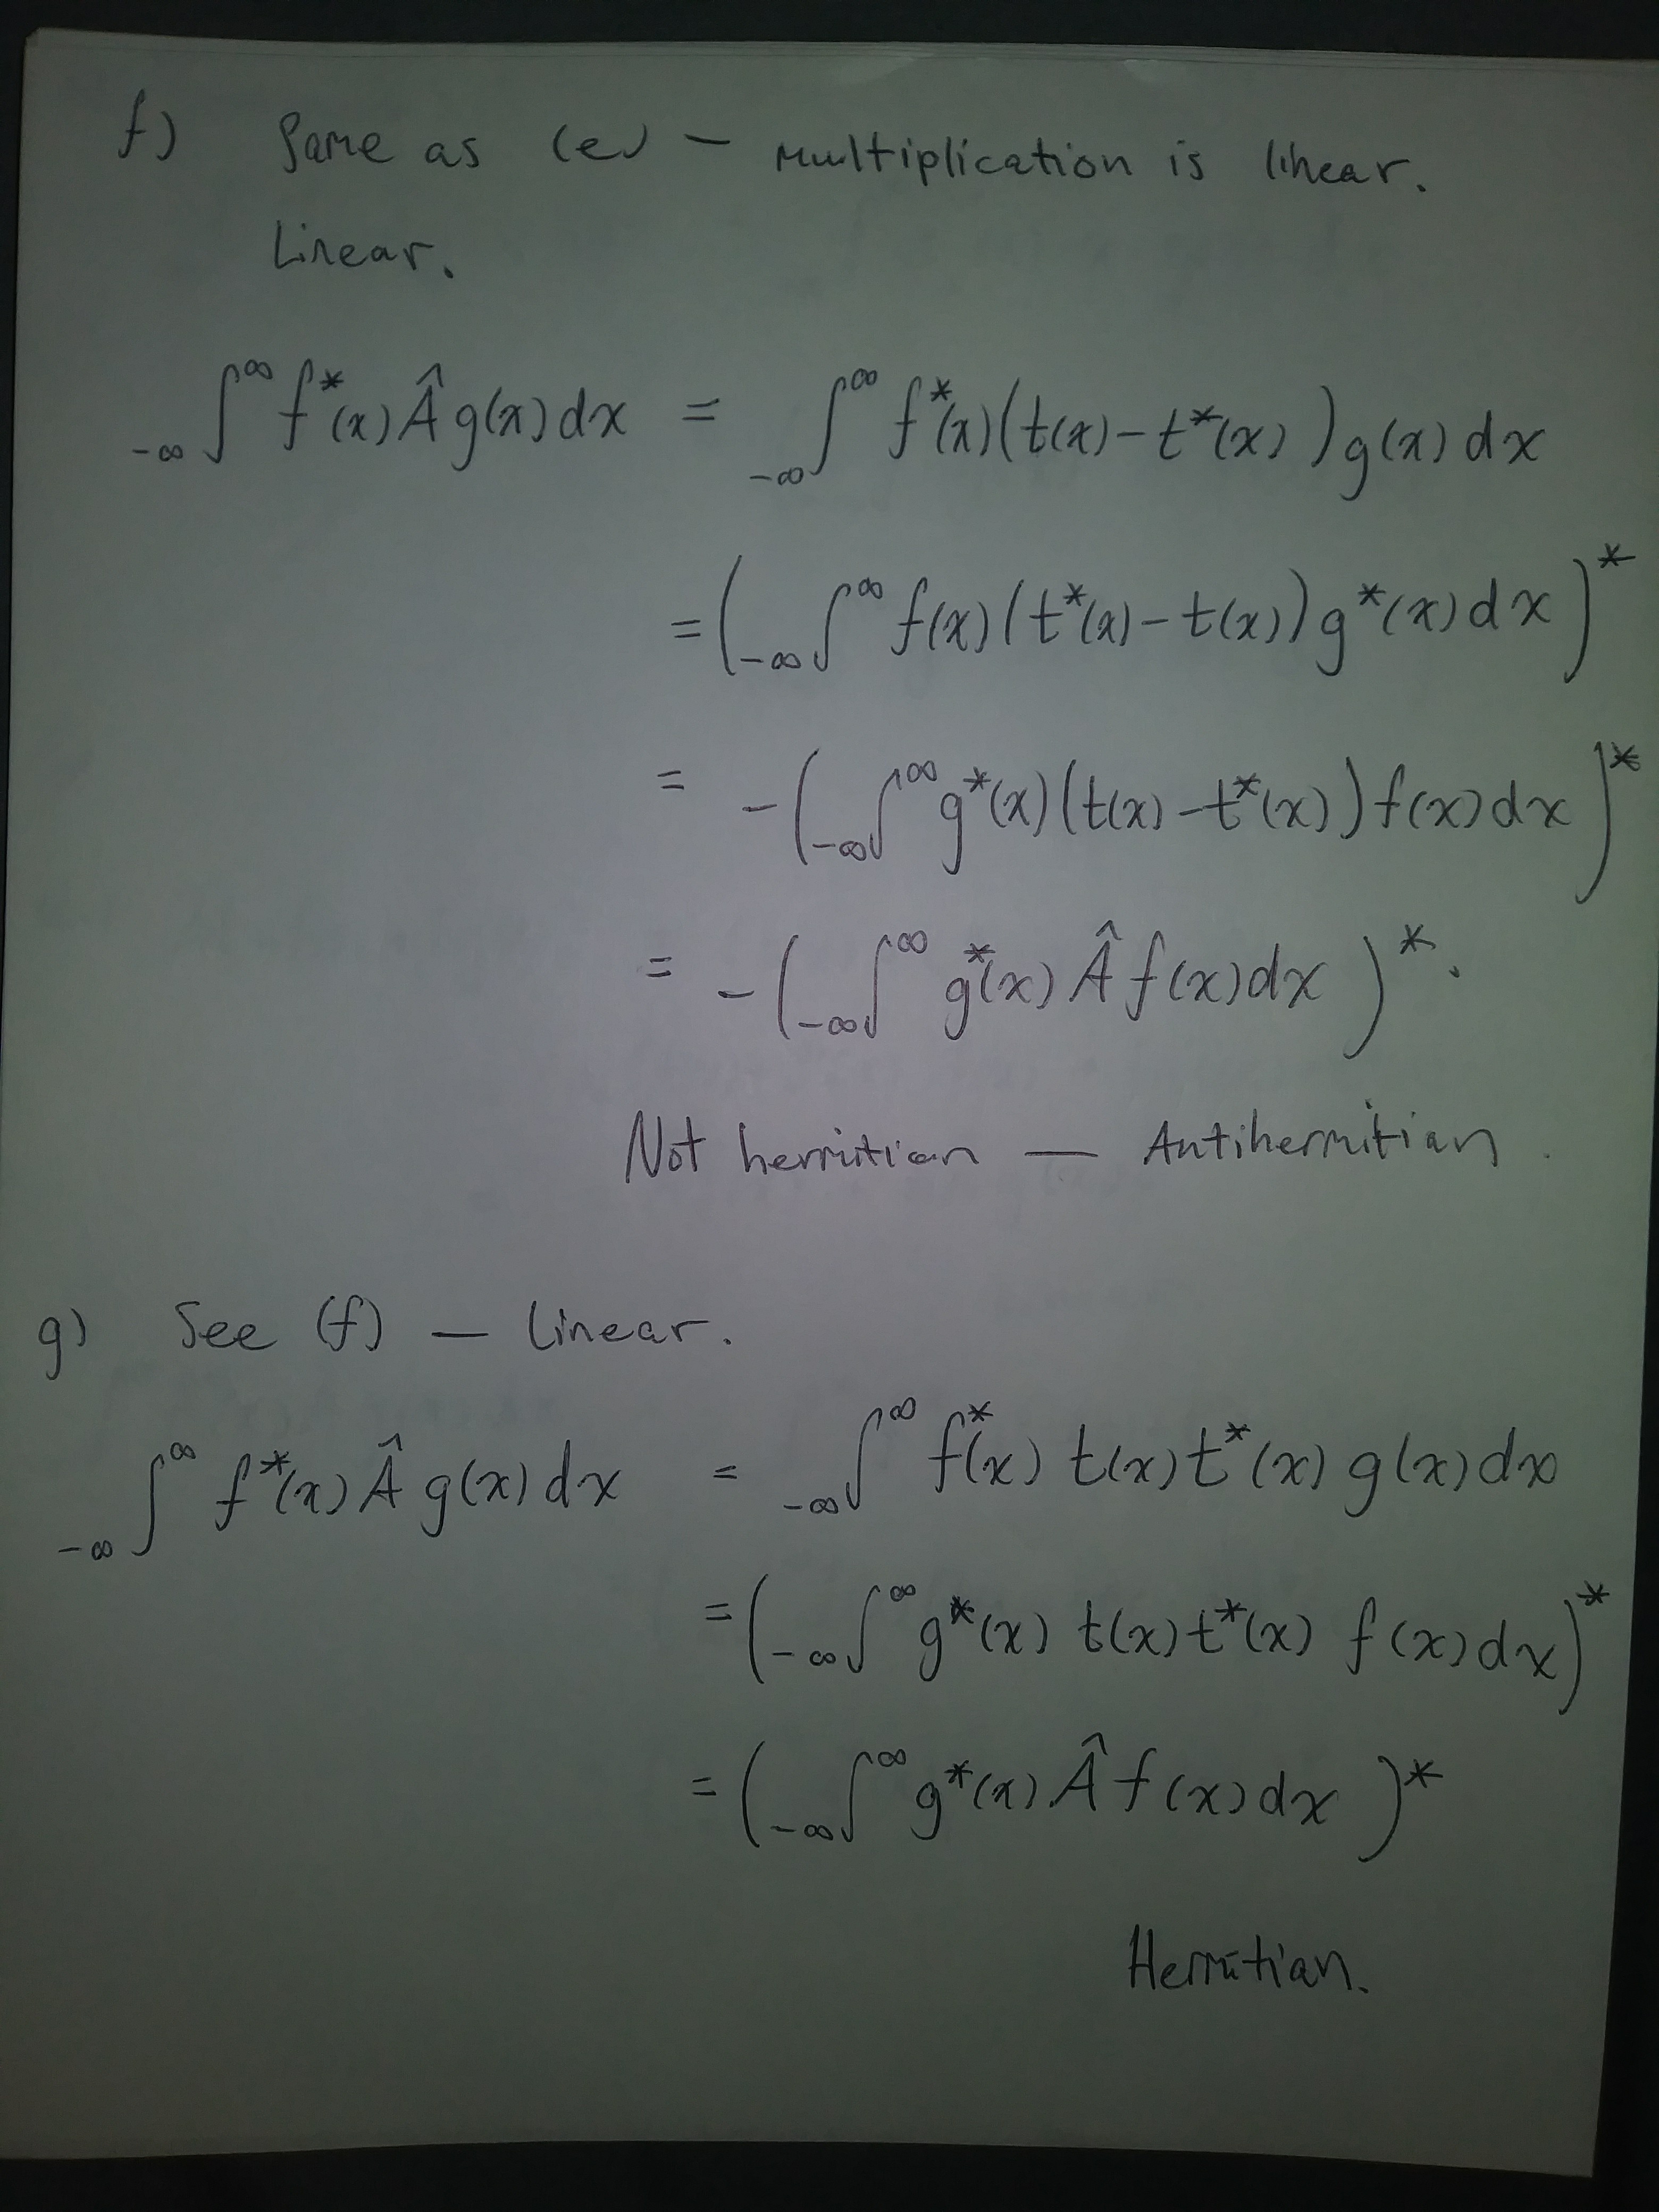 f) Same as (e) — multiplication is linear.
Linear.
-∞∫^∞ f*(x) Â g(x) dx = -∞∫^∞ f*(x)(t(x) - t*(x))g(x) dx
= (-∞∫^∞ f(x)(t*(x) - t(x))g*(x) dx)*
= -(-∞∫^∞ g*(x)(t(x) - t*(x))f(x) dx)*
= -(-∞∫^∞ g*(x) Â f(x) dx)*.
Not hermitian — Antihermitian.
g) See (f) — Linear.
-∞∫^∞ f*(x) Â g(x) dx = -∞∫^∞ f*(x) t(x) t*(x) g(x) dx
= (-∞∫^∞ g*(x) t(x) t*(x) f(x) dx)*
= (-∞∫^∞ g*(x) Â f(x) dx)*
Hermitian.